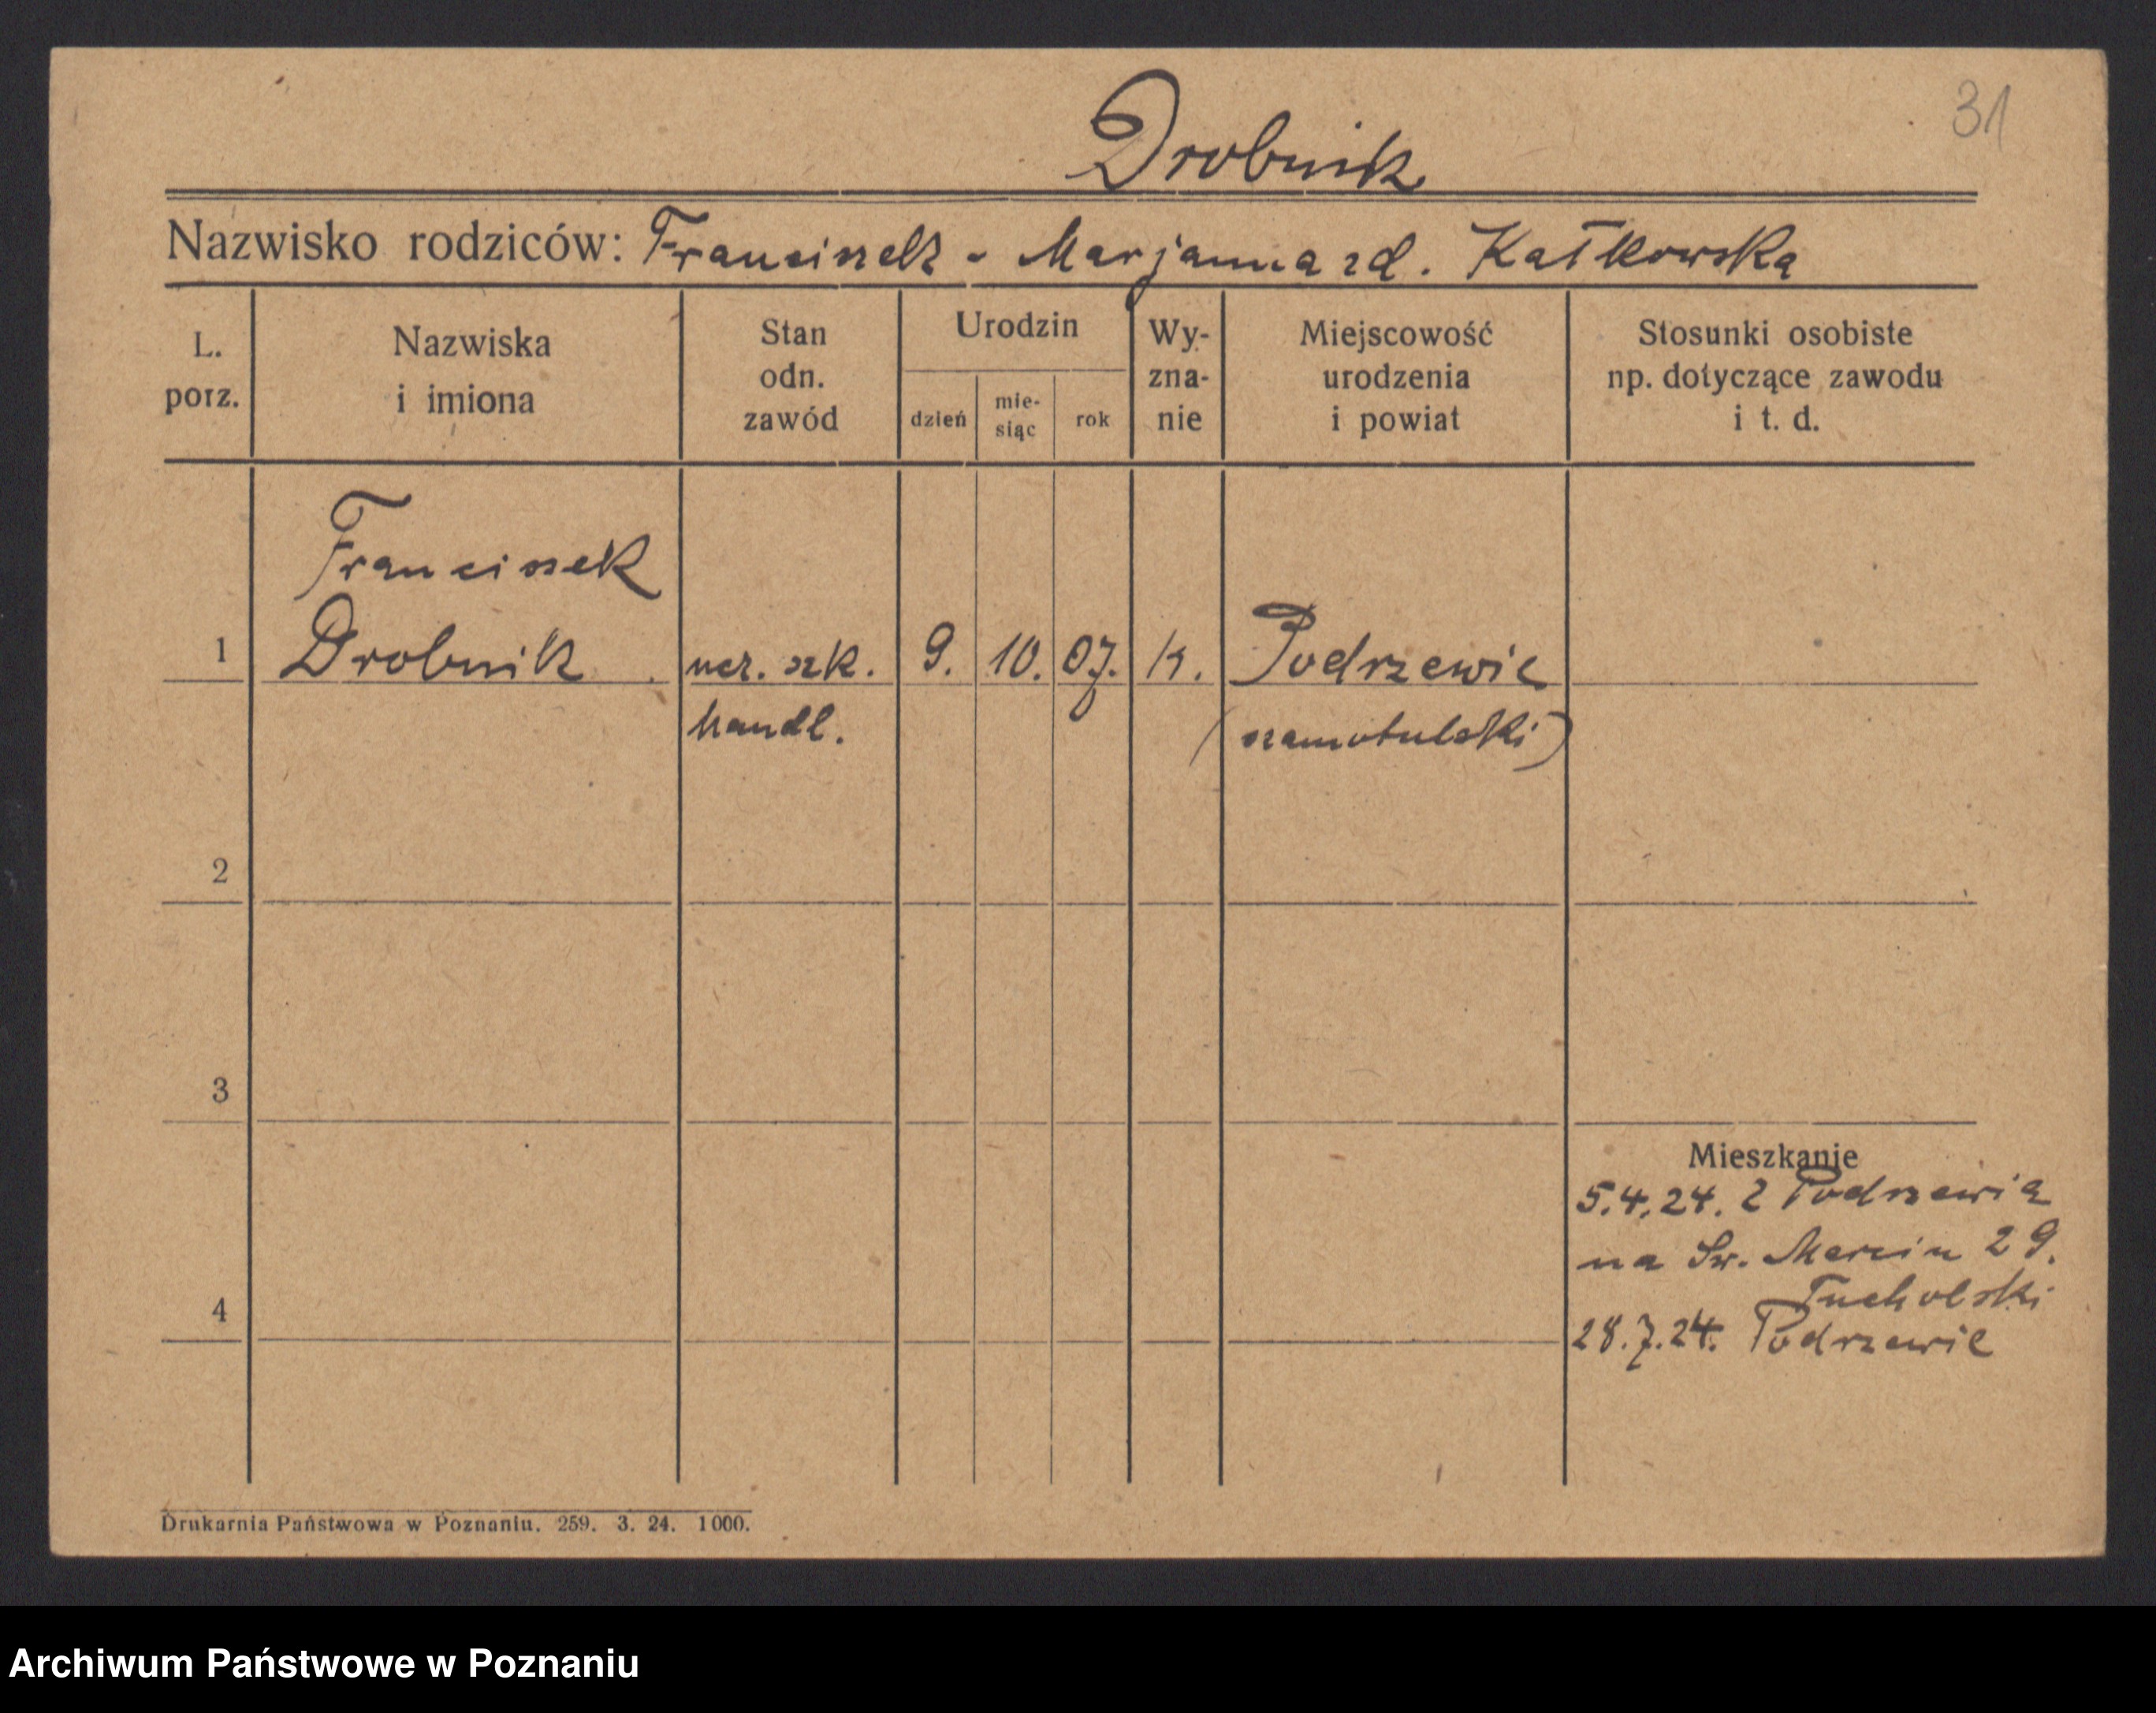 31
Drobnik
Nazwisko rodziców: Franciszek - Marjanna zd. Kałkowska
L. porz.
Nazwiska i imiona
Stan odn. zawód
Urodzin
dzień
mie-siąc
rok
Wy-zna-nie
Miejscowość urodzenia i powiat
Stosunki osobiste np. dotyczące zawodu i t. d.
Franciszek
1 Drobnik ucz. szk. 9. 10. 07. k. Podrzewie
handl. (szamotulski)
2
3
Mieszkanie
5.4.24. z Podrzewia
na Św. Marcin 29.
Tucholski
4
28.7.24. Podrzewie
Drukarnia Państwowa w Poznaniu. 259. 3. 24. 1000.
Archiwum Państwowe w Poznaniu